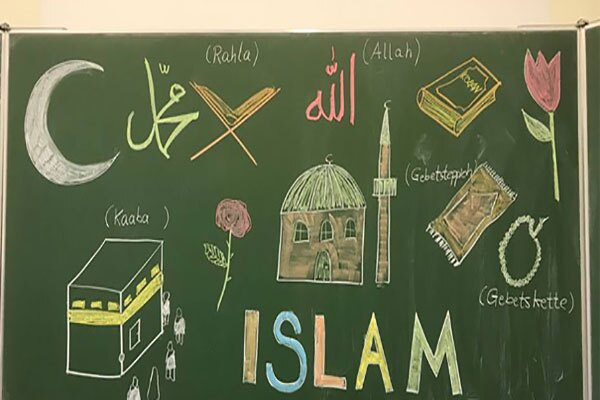 (Rahla)
الله
(Allah)
محمد
KORAN
(Gebetsteppich)
(Kaaba)
(Gebetskette)
ISLAM